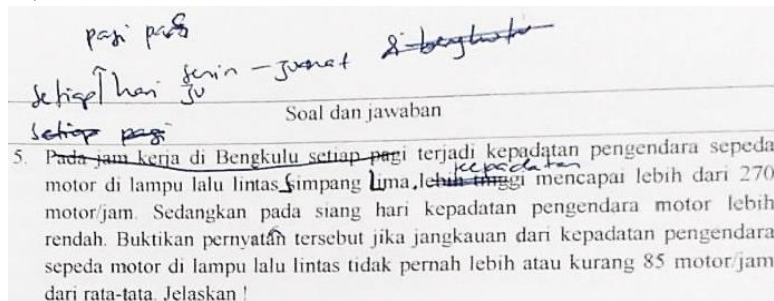 pagi pada
Setiap hari senin - jumat di bengkulu
Ju
Soal dan jawaban
Setiap pagi
5. Pada jam kerja di Bengkulu setiap pagi terjadi kepadatan pengendara sepeda
kepadatan
motor di lampu lalu lintas Simpang Lima, lebih tinggi mencapai lebih dari 270
motor/jam. Sedangkan pada siang hari kepadatan pengendara motor lebih
rendah. Buktikan pernyatan tersebut jika jangkauan dari kepadatan pengendara
sepeda motor di lampu lalu lintas tidak pernah lebih atau kurang 85 motor/jam
dari rata-tata. Jelaskan !